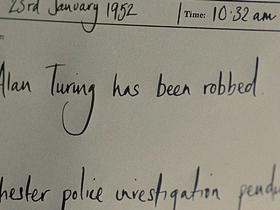 23rd January 1952
Time: 10:32 am
Alan Turing has been robbed.
police investigation